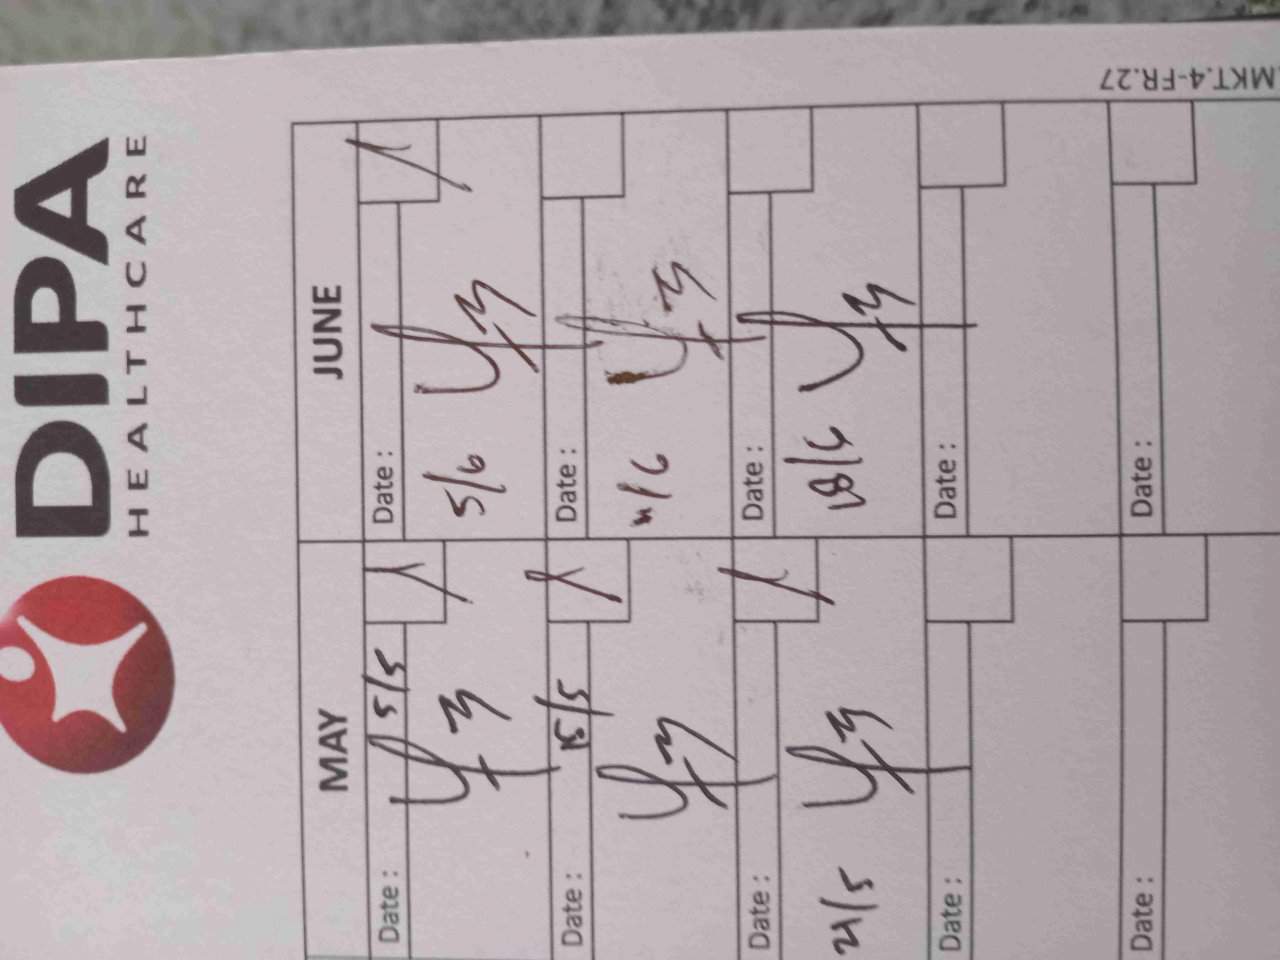 DIPA
HEALTHCARE
MKT.4-FR.27
MAY
JUNE
Date : 5/5
Date :
5/6
Date : 15/5
Date :
11/6
Date :
21/5
Date :
18/6
Date :
Date :
Date :
Date :